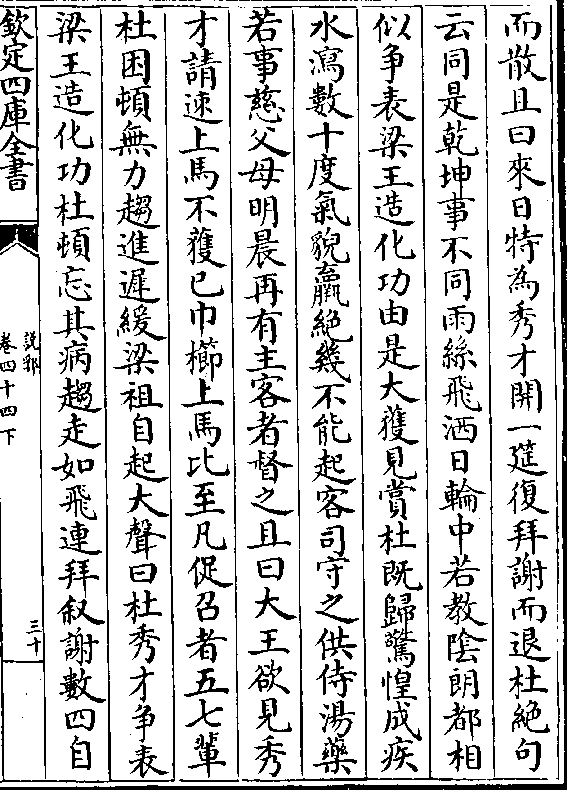 而散且曰來日特為秀才開一筵復拜謝而退杜絶句
云同是乾坤事不同雨絲飛洒日輪中若教陰朗都相
似争表梁王造化功由是大獲見賞杜既歸驚惶成疾
水瀉數十度氣貌羸絶幾不能起客司守之供侍湯藥
若事慈父母明晨再有主客者督之且曰大王欲見秀
才請速上馬不獲已巾櫛上馬比至凡促召者五七輩
杜困頓無力趨進遲緩梁祖自起大聲曰杜秀才争表
梁王造化功杜頓忘其病趨走如飛連拜叙謝數四自
欽定四庫全書
説郛
卷四十四下
三十